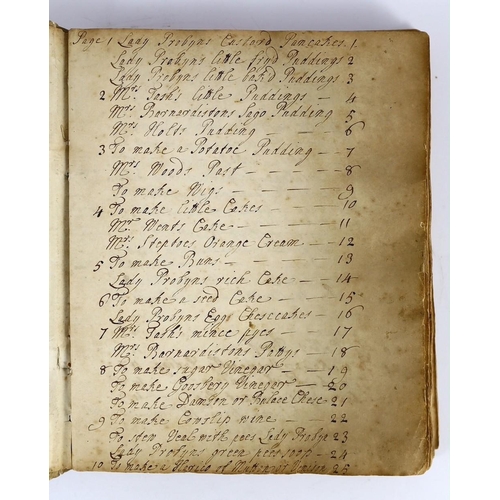 Page 1 Lady Probyns Custord Pancakes 1
Lady Probyns little fryd Puddings 2
Lady Probyns little bak'd Puddings 3
2 Mrs Tash's Little Puddings 4
Mrs Barnardistons Sago Pudding 5
Mrs Holts Pudding 6
3 To make a Potatoe Pudding 7
Mrs Woods Past 8
To make Wigs 9
4 To make little Cakes 10
Mrs Wents Cake 11
Mrs Steptoes Orange Cream 12
5 To make Buns 13
Lady Probyns rich Cake 14
6 To make a seed Cake 15
Lady Probyns Egg Chescakes 16
7 Mrs Tash's mince pyes 17
Mrs Barnardistons Pattys 18
8 To make sugar Vinegar 19
To make Goosbery Vinegar 20
To make Damson or Bulace Chese 21
9 To make Cowslip wine 22
To stew Veal with pees Lady Probyn 23
Lady Probyns green pees soop 24
10 To make a of Mutton or 25